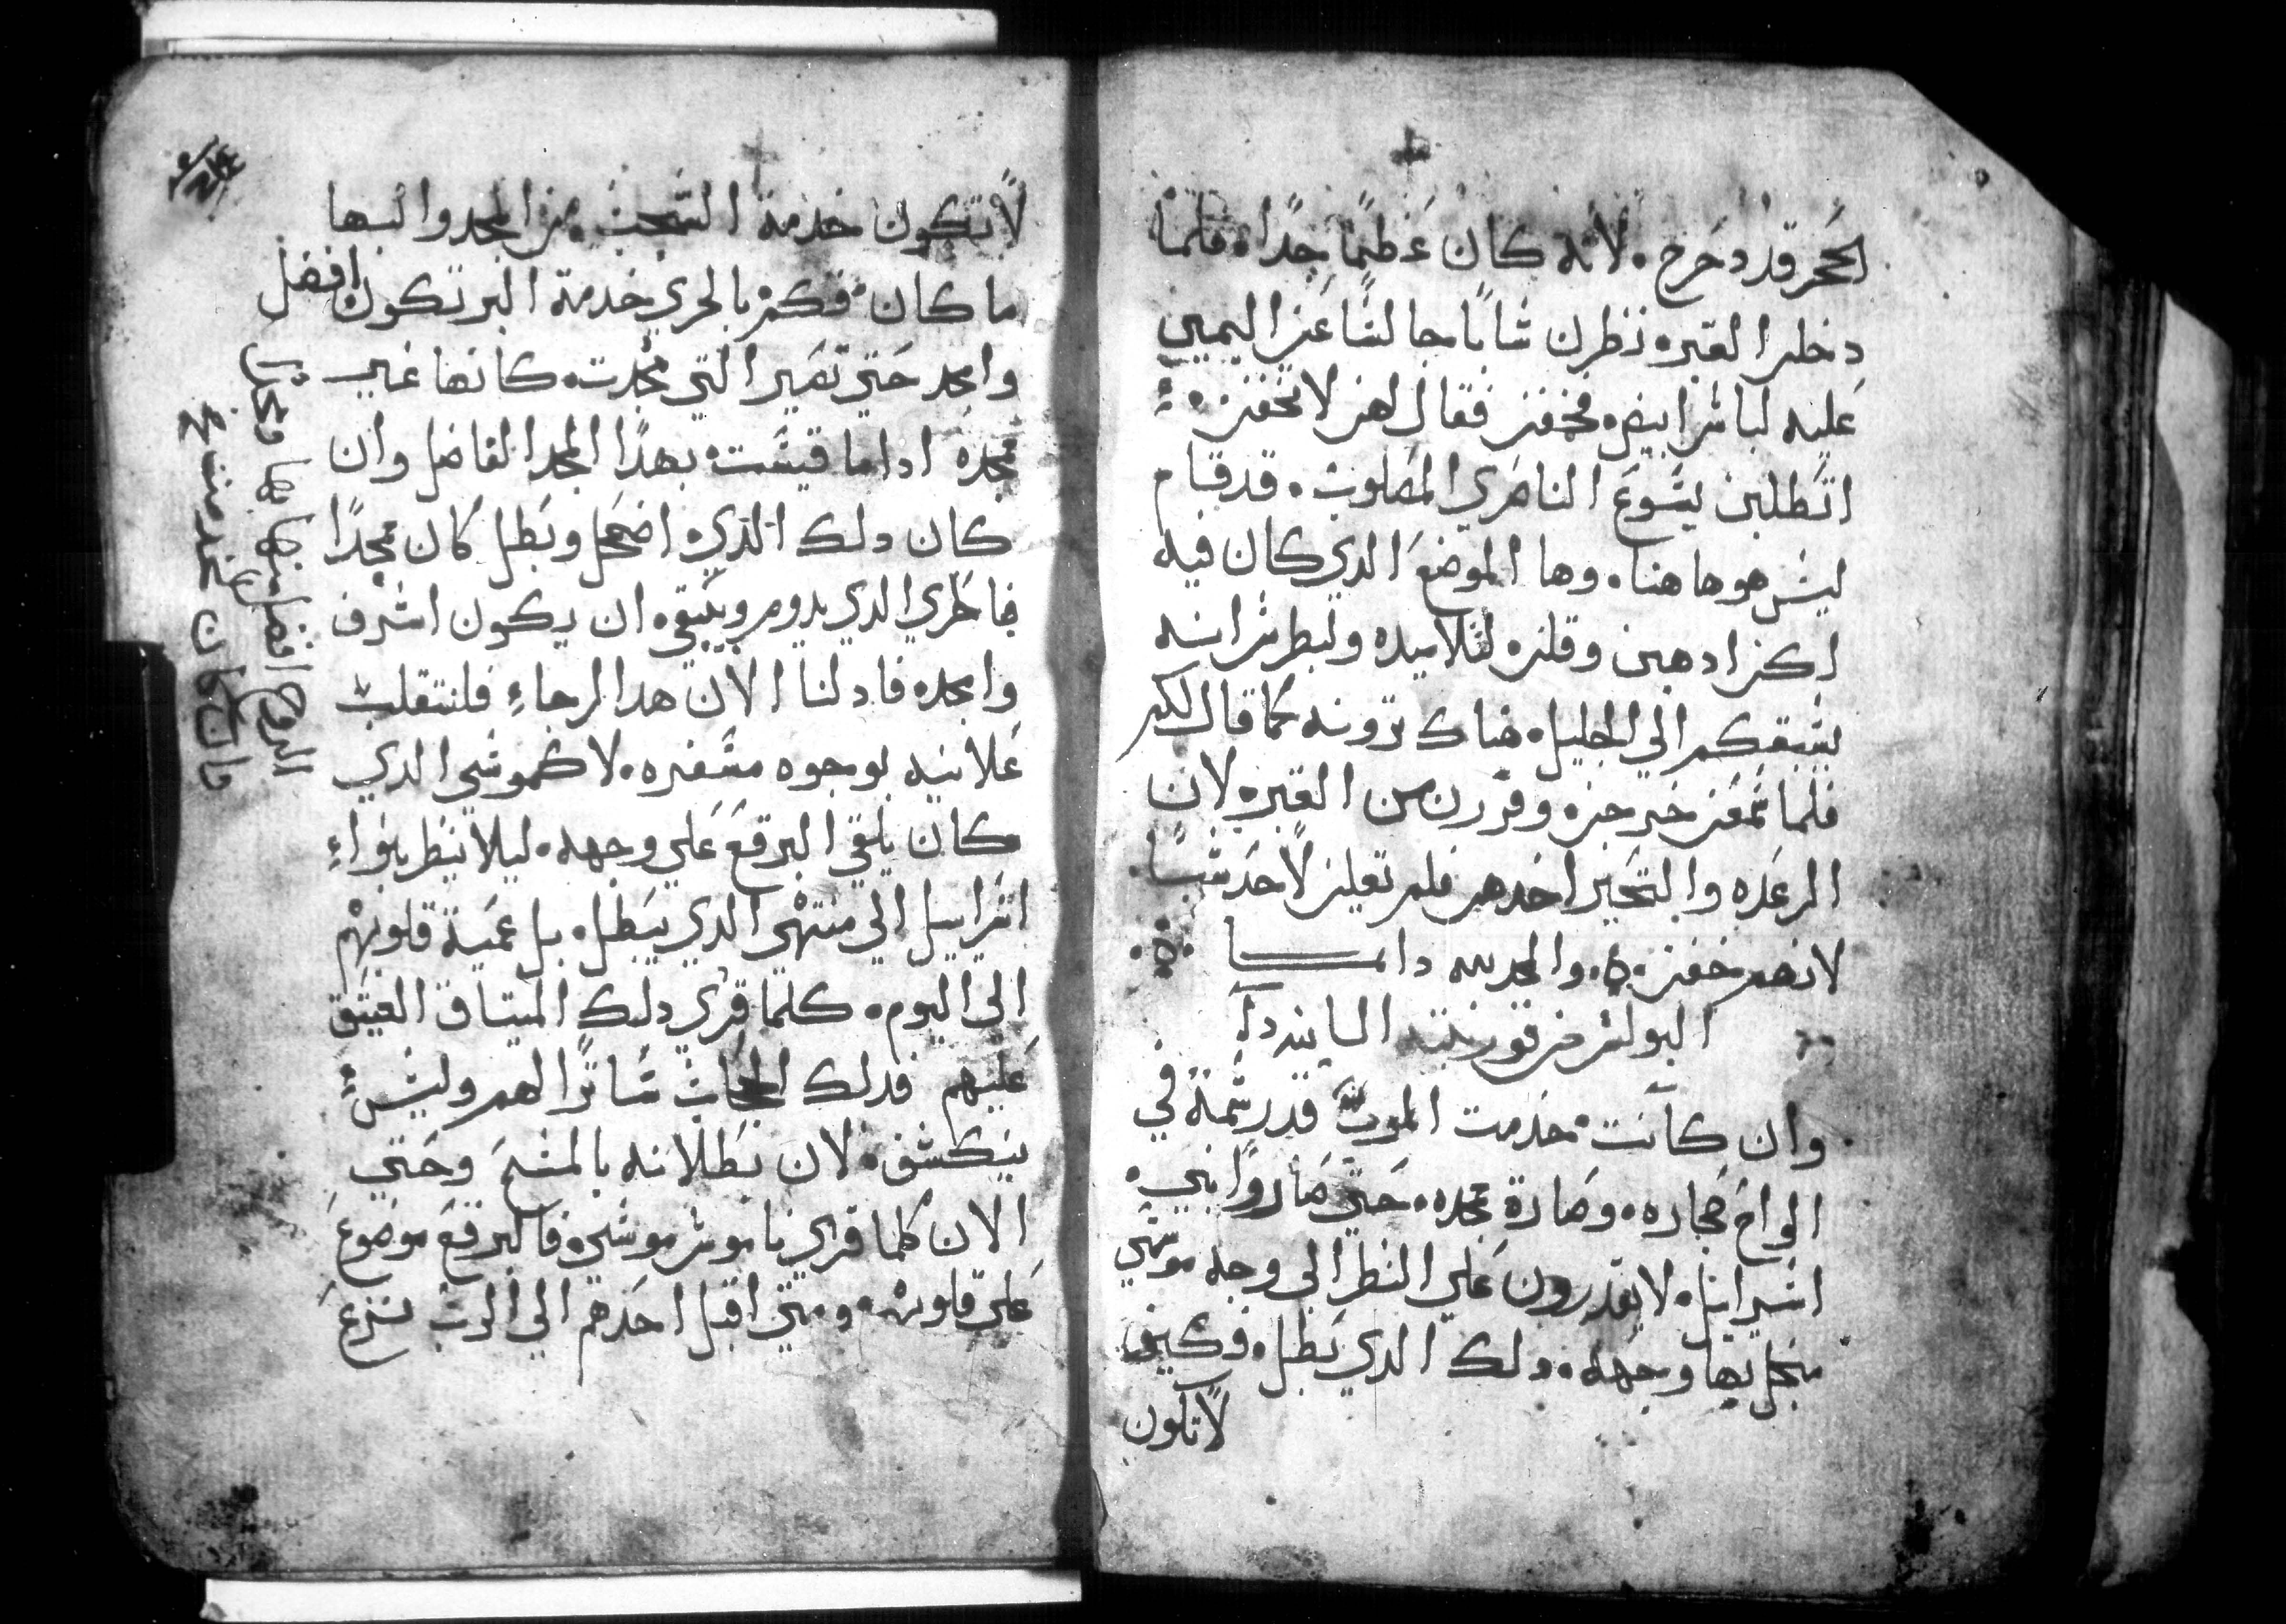 الحجر قد دحرج. لانه كان عظيمًا جدًا. فلما
دخلن القبر. نظرن شابًا جالسًا عن اليمين
عليه لباس ابيض. فخفن فقال لهن لا تخفن.
اتطلبن يسوع الناصري المصلوب. قد قام
ليس هو هاهنا. وها الموضع الدي كان فيه
لكن ادهبن وقلن لتلاميده ولبطرس انه
يسبقكم الي الجليل. هناك ترونه كما قال لكم
فلما سمعن خرجن. وفررن من القبر. لان
الرعده والتحير اخدهم فلم تقلن لاحد شيًا
لانهم خفن. والمجد لله دايمــا
البولس من قورنتيه التانيه
وان كانت خدمت الموت قد رسمة في
الواح حجاره. وصارة بمجده. حتي صاروا بني
اسراييل. لا يقدرون علي النظر الي وجه موسي
منجل بها وجهه. دلك الدي بطل. فكيف
لا تكون
لا تكون خدمة من المجد والبها
ما كان. فكم بالحري خدمة البر تكون افضل
وامجد حتي تصير التي مجدت. كانها غير
مجده ادا ما قيست. بهدا المجد الفاضل وان
كان دلك الدي اضمحل وبطل كان مجدًا
فالحري الدي يدوم ويبقي. ان يكون اشرف
وامجد. فاد لنا الان هدا الرجاء فلنتقلب
علانيه بوجوه مسفره. لا كموسي الدي
كان يلقي البرقع علي وجهه. ليلا ينظر بنواء
اسراييل الي منتهي الدي يبطل. بل عمية قلوبهم
الي اليوم. كلما قري دلك الميتاق العتيق
عليهم فدلك الحجاب ساترًا لهم وليس
ينكشف. لان بطلانه بالمسيح وحتي
الان كلما قري ناموس موسي. فالبرقع موضوع
علي قلوبهم. ومتي اقبل احدهم الي الرب نزع
الروح افضل منها بها
فان كان خدمت